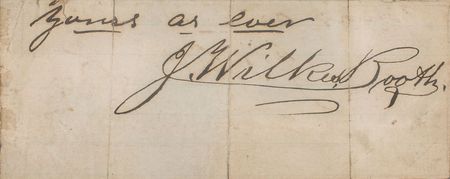 Yours as ever
J. Wilkes Booth.